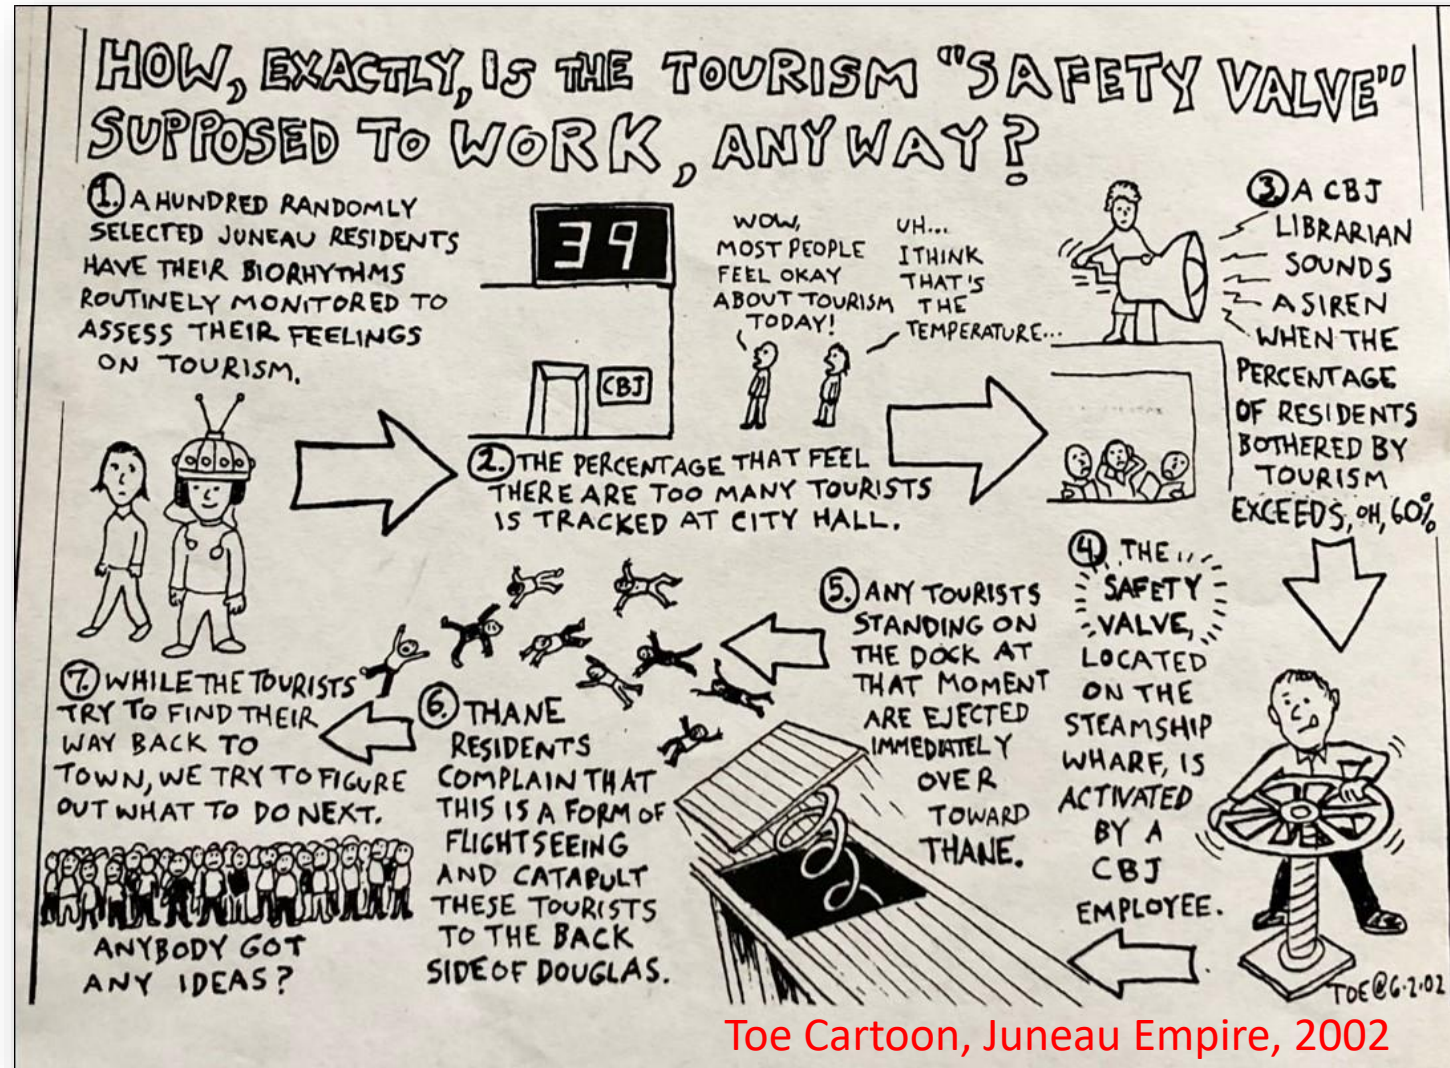 HOW, EXACTLY, IS THE TOURISM "SAFETY VALVE"
SUPPOSED TO WORK, ANYWAY?
1. A HUNDRED RANDOMLY
SELECTED JUNEAU RESIDENTS
HAVE THEIR BIORHYTHMS
ROUTINELY MONITORED TO
ASSESS THEIR FEELINGS
ON TOURISM.
39
CBJ
WOW,
MOST PEOPLE
FEEL OKAY
ABOUT TOURISM
TODAY!
UH...
I THINK
THAT'S
THE
TEMPERATURE...
2. THE PERCENTAGE THAT FEEL
THERE ARE TOO MANY TOURISTS
IS TRACKED AT CITY HALL.
3. A CBJ
LIBRARIAN
SOUNDS
A SIREN
WHEN THE
PERCENTAGE
OF RESIDENTS
BOTHERED BY
TOURISM
EXCEEDS, OH, 60%
4. THE
SAFETY
VALVE,
LOCATED
ON THE
STEAMSHIP
WHARF, IS
ACTIVATED
BY A
CBJ
EMPLOYEE.
5. ANY TOURISTS
STANDING ON
THE DOCK AT
THAT MOMENT
ARE EJECTED
IMMEDIATELY
OVER
TOWARD
THANE.
6. THANE
RESIDENTS
COMPLAIN THAT
THIS IS A FORM OF
FLIGHTSEEING
AND CATAPULT
THESE TOURISTS
TO THE BACK
SIDE OF DOUGLAS.
7. WHILE THE TOURISTS
TRY TO FIND THEIR
WAY BACK TO
TOWN, WE TRY TO FIGURE
OUT WHAT TO DO NEXT.
ANYBODY GOT
ANY IDEAS?
TOE©6·2·02
Toe Cartoon, Juneau Empire, 2002